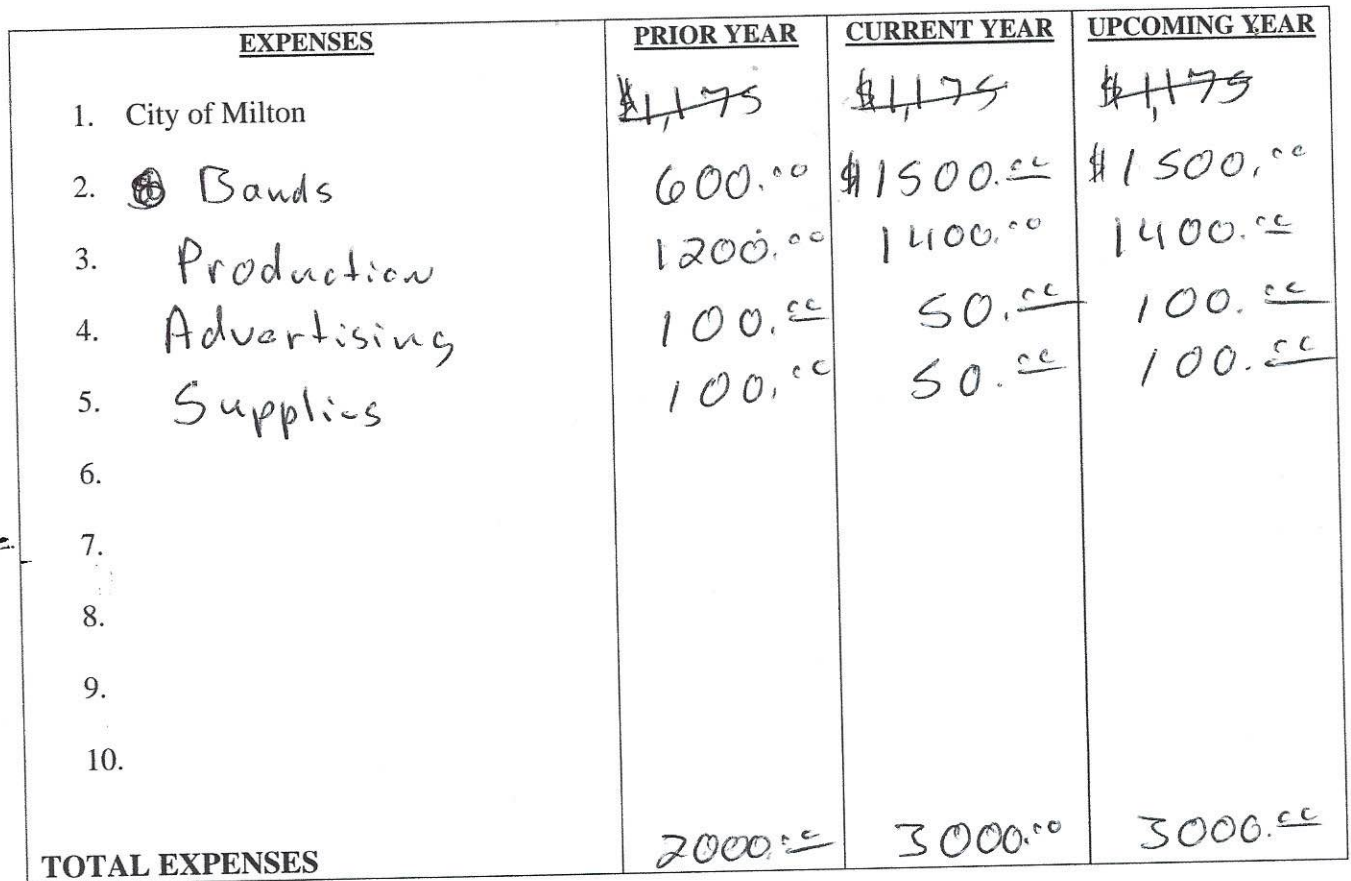 EXPENSES PRIOR YEAR CURRENT YEAR UPCOMING YEAR
1. City of Milton $1,175 $1,175 $1,175
2. Bands 600.00 $1500.00 $1500.00
3. Production 1200.00 1400.00 1400.00
4. Advertising 100.00 50.00 100.00
5. Supplies 100.00 50.00 100.00
6.
7.
8.
9.
10.
TOTAL EXPENSES 2000.00 3000.00 3000.00